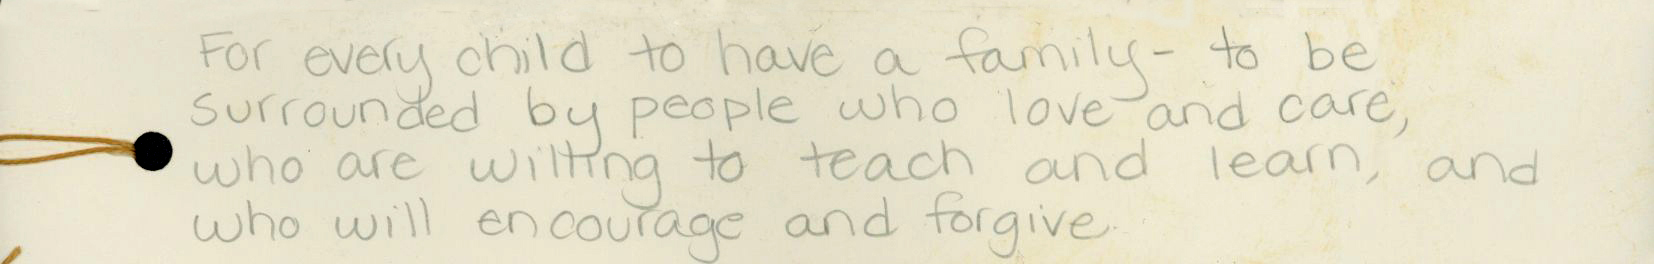 For every child to have a family- to be
surrounded by people who love and care,
who are willing to teach and learn, and
who will encourage and forgive.